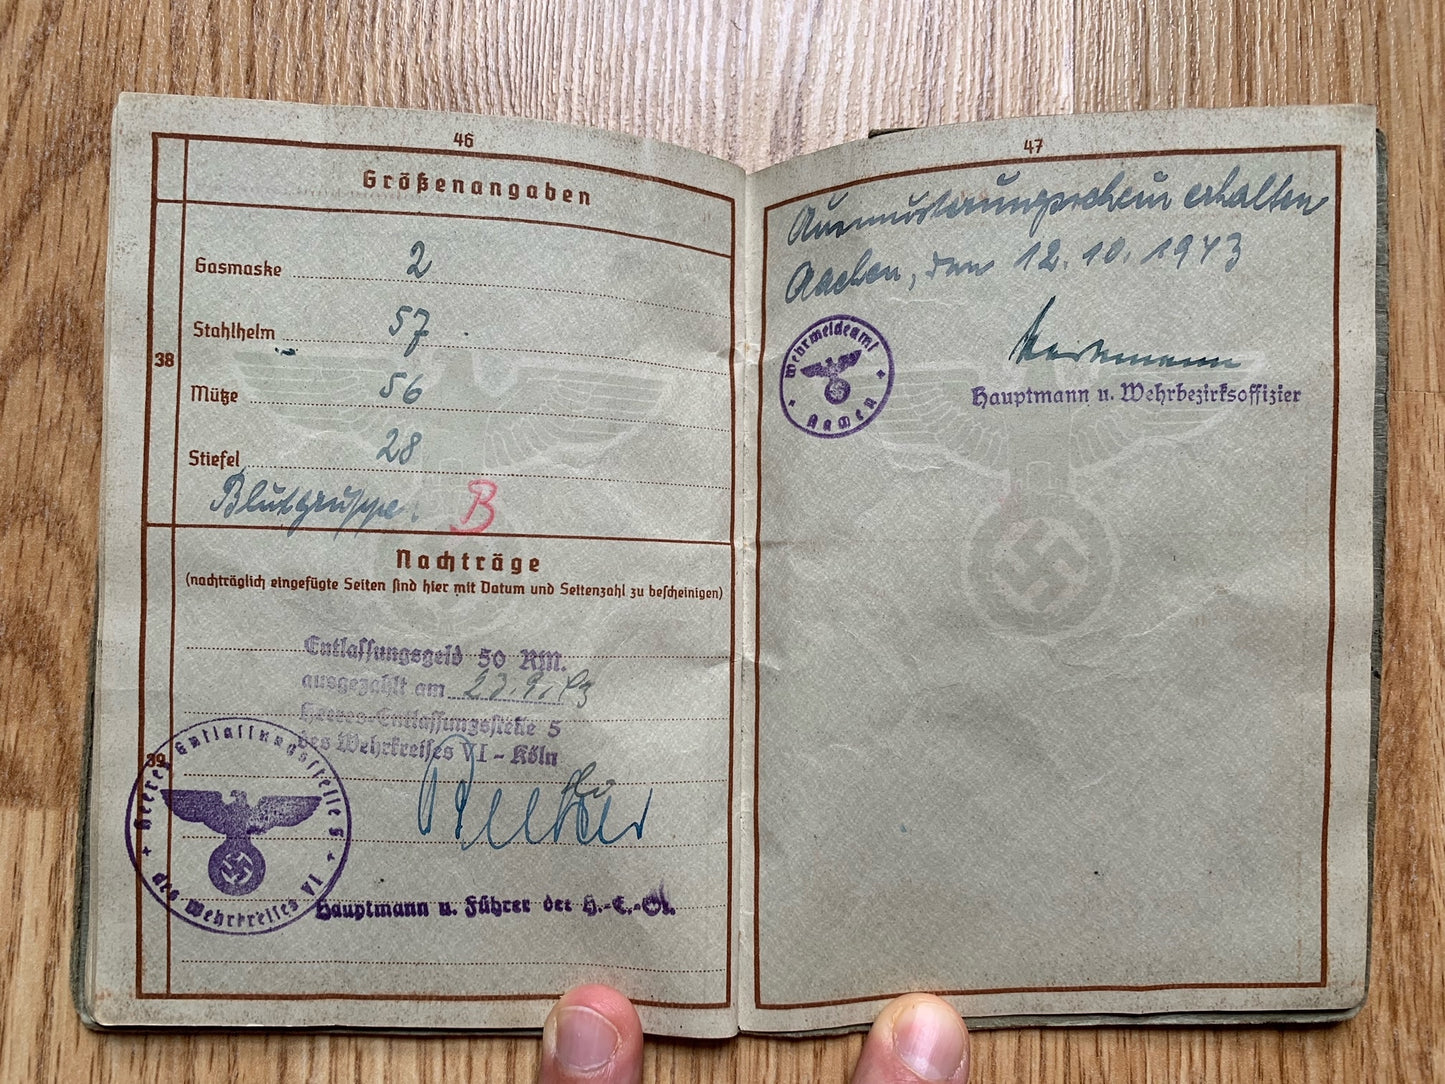 46
Größenangaben
38
Gasmaske 2
Stahlhelm 57
Mütze 56
Stiefel 28
Blutgruppe: B
Nachträge
(nachträglich eingefügte Seiten sind hier mit Datum und Seitenzahl zu bescheinigen)
39
Entlassungsgeld 50 RM.
ausgezahlt am 23.9.43
Heeres-Entlassungsstelle 5
des Wehrkreises VI - Köln
Heeres Entlassungsstelle 5
des Wehrkreises VI
Hauptmann u. Führer der H.-E.-St.
47
Ausmusterungsschein erhalten
Aachen, den 12.10.1943
Wehrmeldeamt
Aachen
Hauptmann u. Wehrbezirksoffizier